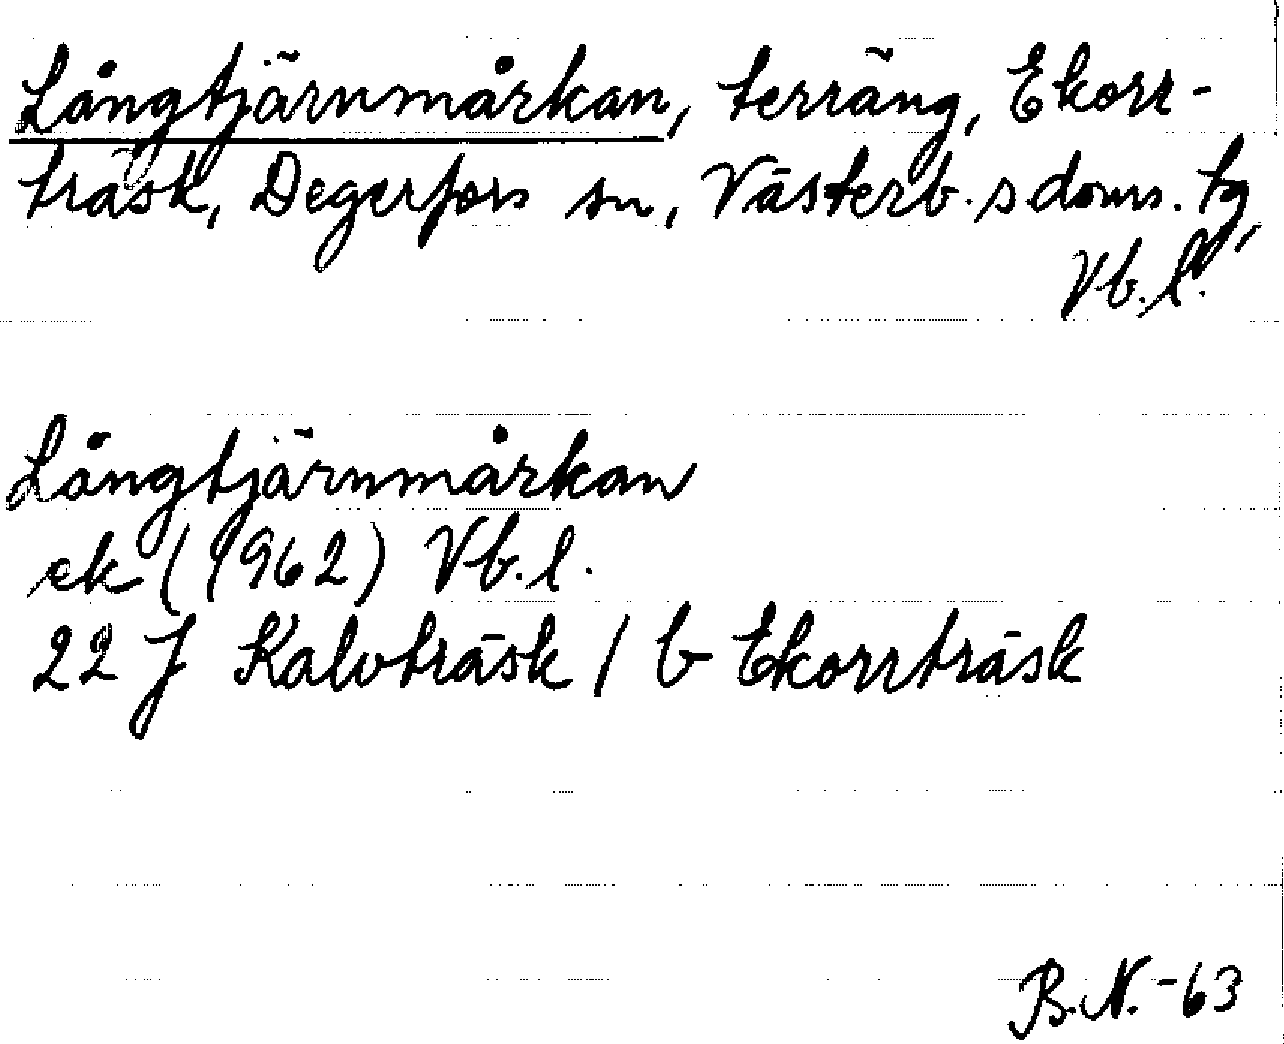 Långtjärnmårkan, terräng, Ekorr-
träsk, Degerfors sn, Västerb. s doms. tg,
Vb.l.
Långtjärnmårkan
ek (1962) Vb.l.
22 J Kalvträsk / b Ekorrträsk
B.N.-63